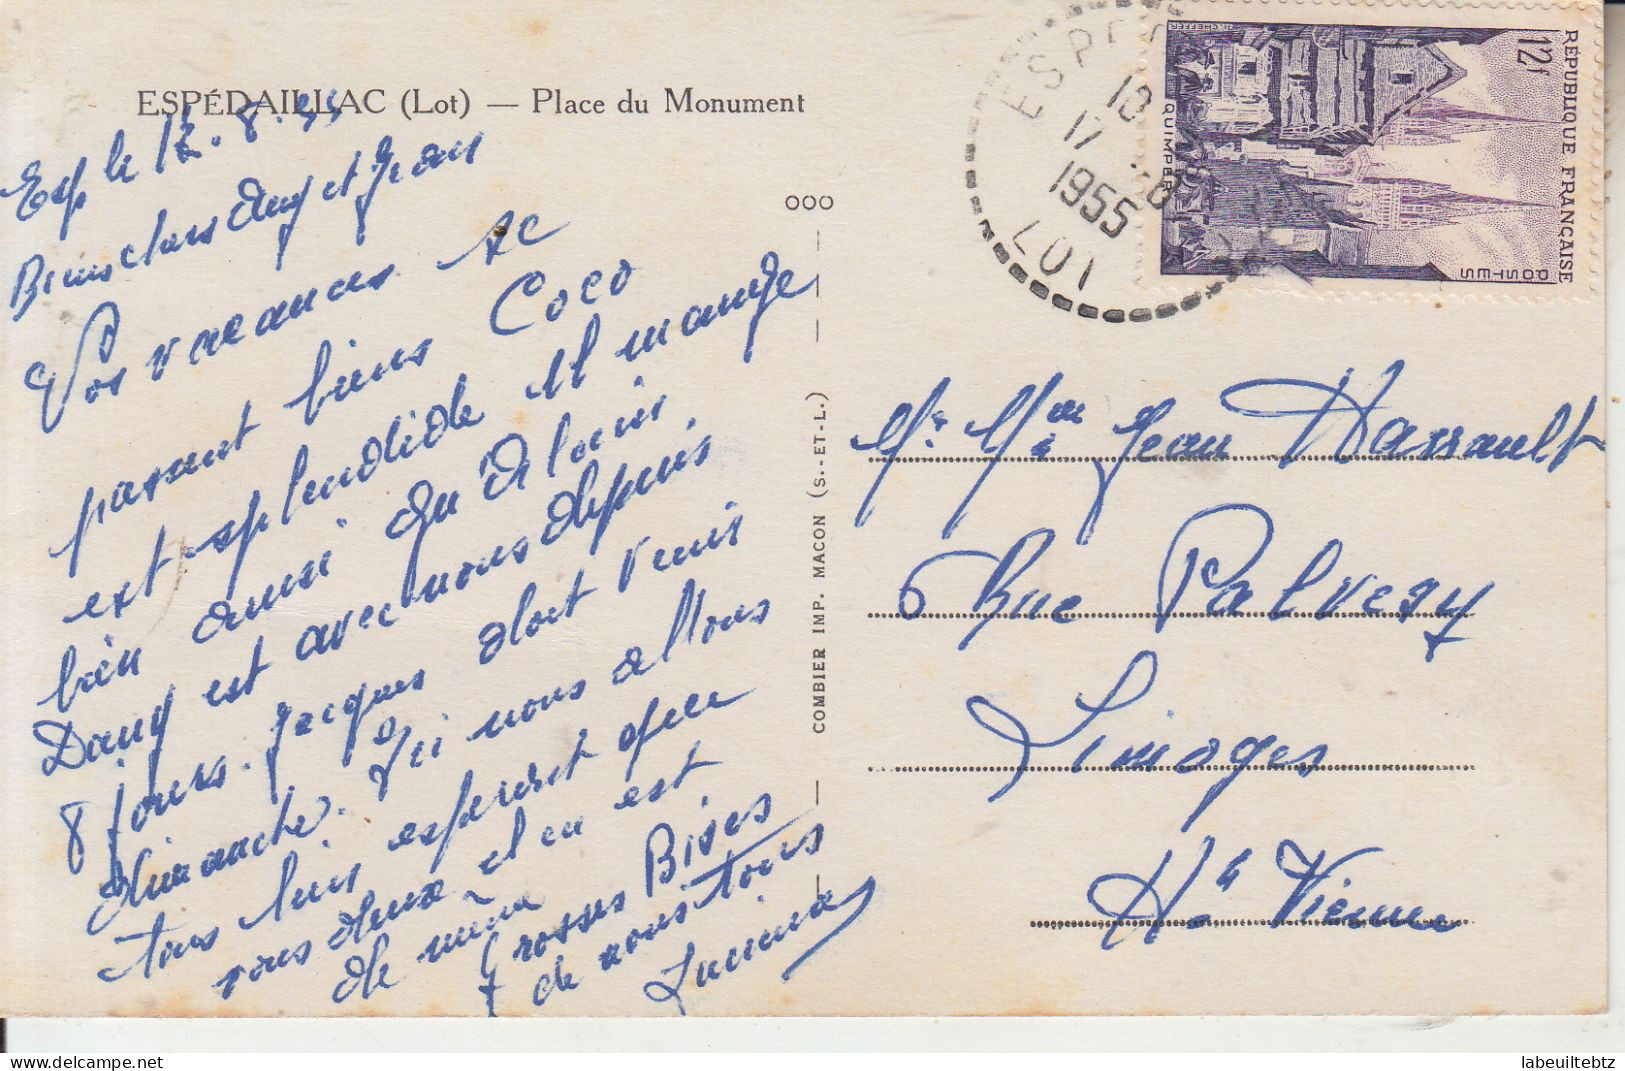 ESPÉDAILLAC (Lot) — Place du Monument
Esp le 17.8.55
Biens chers Dany et Jean
Vos vacances se
passent biens Coco
est splendide il mange
bien aussi qu'
Dany est avec nous depuis
8 jours. Jacques doit venir
dimanche. Ici nous allons
tous biens esperent que
vous deux il en est
de même
Grosses Bises
de nous tous
000
COMBIER IMP. MACON (S.-ET-L.)
10
17 -8
1955
LOT
RÉPUBLIQUE FRANÇAISE
12f
POSTES
QUIMPER
Mr & Mme Jean Hassault
6 Rue Palvezy
Limoges
Hte Vienne
labeuiltebtz